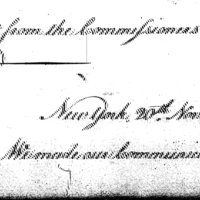 from the Commissioners
New York, 20th Nov
We made our Communic